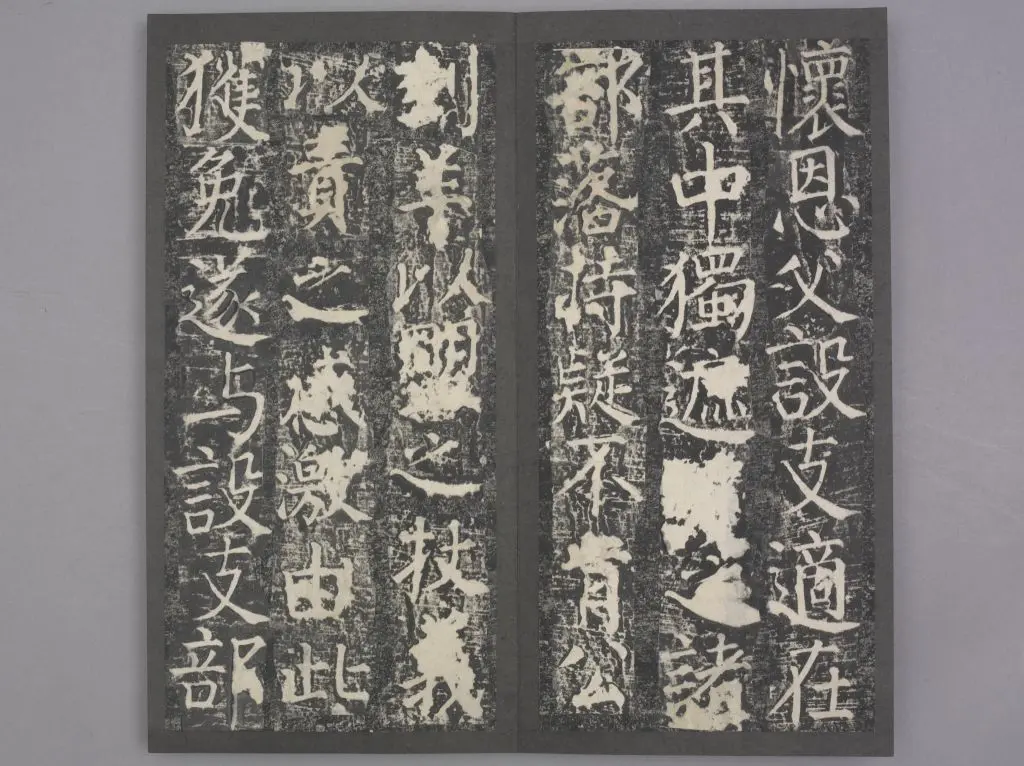 懷恩父設支適在
其中獨遮之諸
部落持疑不肯公
刲羊以盟之杖義
以責之感激由此
獲免遂与設支部